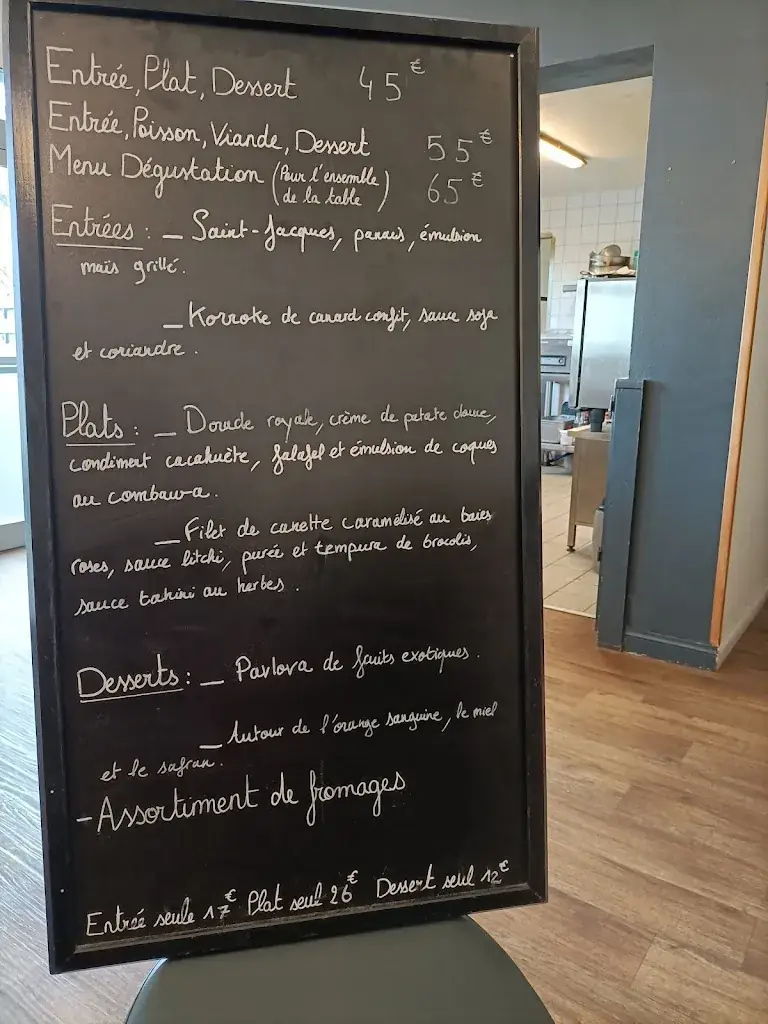 Entrée, Plat, Dessert 45€
Entrée, Poisson, Viande, Dessert 55€
Menu Dégustation (Pour l'ensemble de la table) 65€
Entrées : _ Saint-Jacques, panais, émulsion
maïs grillé.
_ Korroke de canard confit, sauce soja
et coriandre.
Plats : _ Dorade royale, crème de patate douce,
condiment cacahuète, falafel et émulsion de coques
au combawa.
_ Filet de canette caramélisé au baies
roses, sauce litchi, purée et tempura de brocolis,
sauce tahini au herbes.
Desserts : _ Pavlova de fruits exotiques.
_ Autour de l'orange sanguine, le miel
et le safran.
- Assortiment de fromages
Entrée seule 17€ Plat seul 26€ Dessert seul 12€